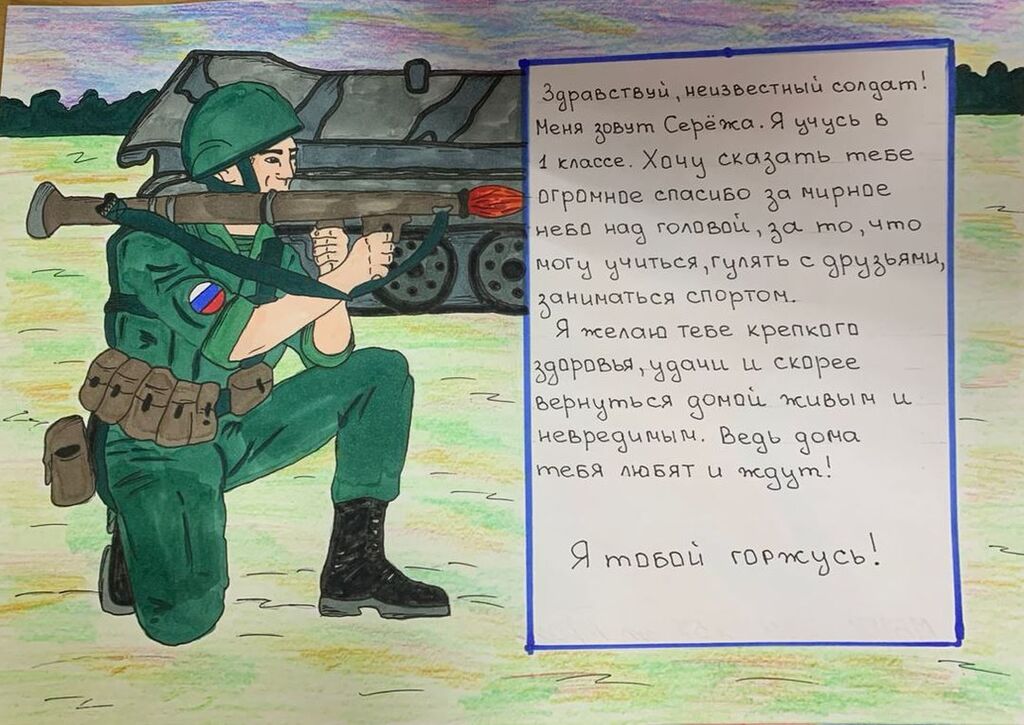 Здравствуй, неизвестный солдат!
Меня зовут Серёжа. Я учусь в
1 классе. Хочу сказать тебе
огромное спасибо за мирное
небо над головой, за то, что
могу учиться, гулять с друзьями,
заниматься спортом.
Я желаю тебе крепкого
здоровья, удачи и скорее
вернуться домой живым и
невредимым. Ведь дома
тебя любят и ждут!
Я тобой горжусь!